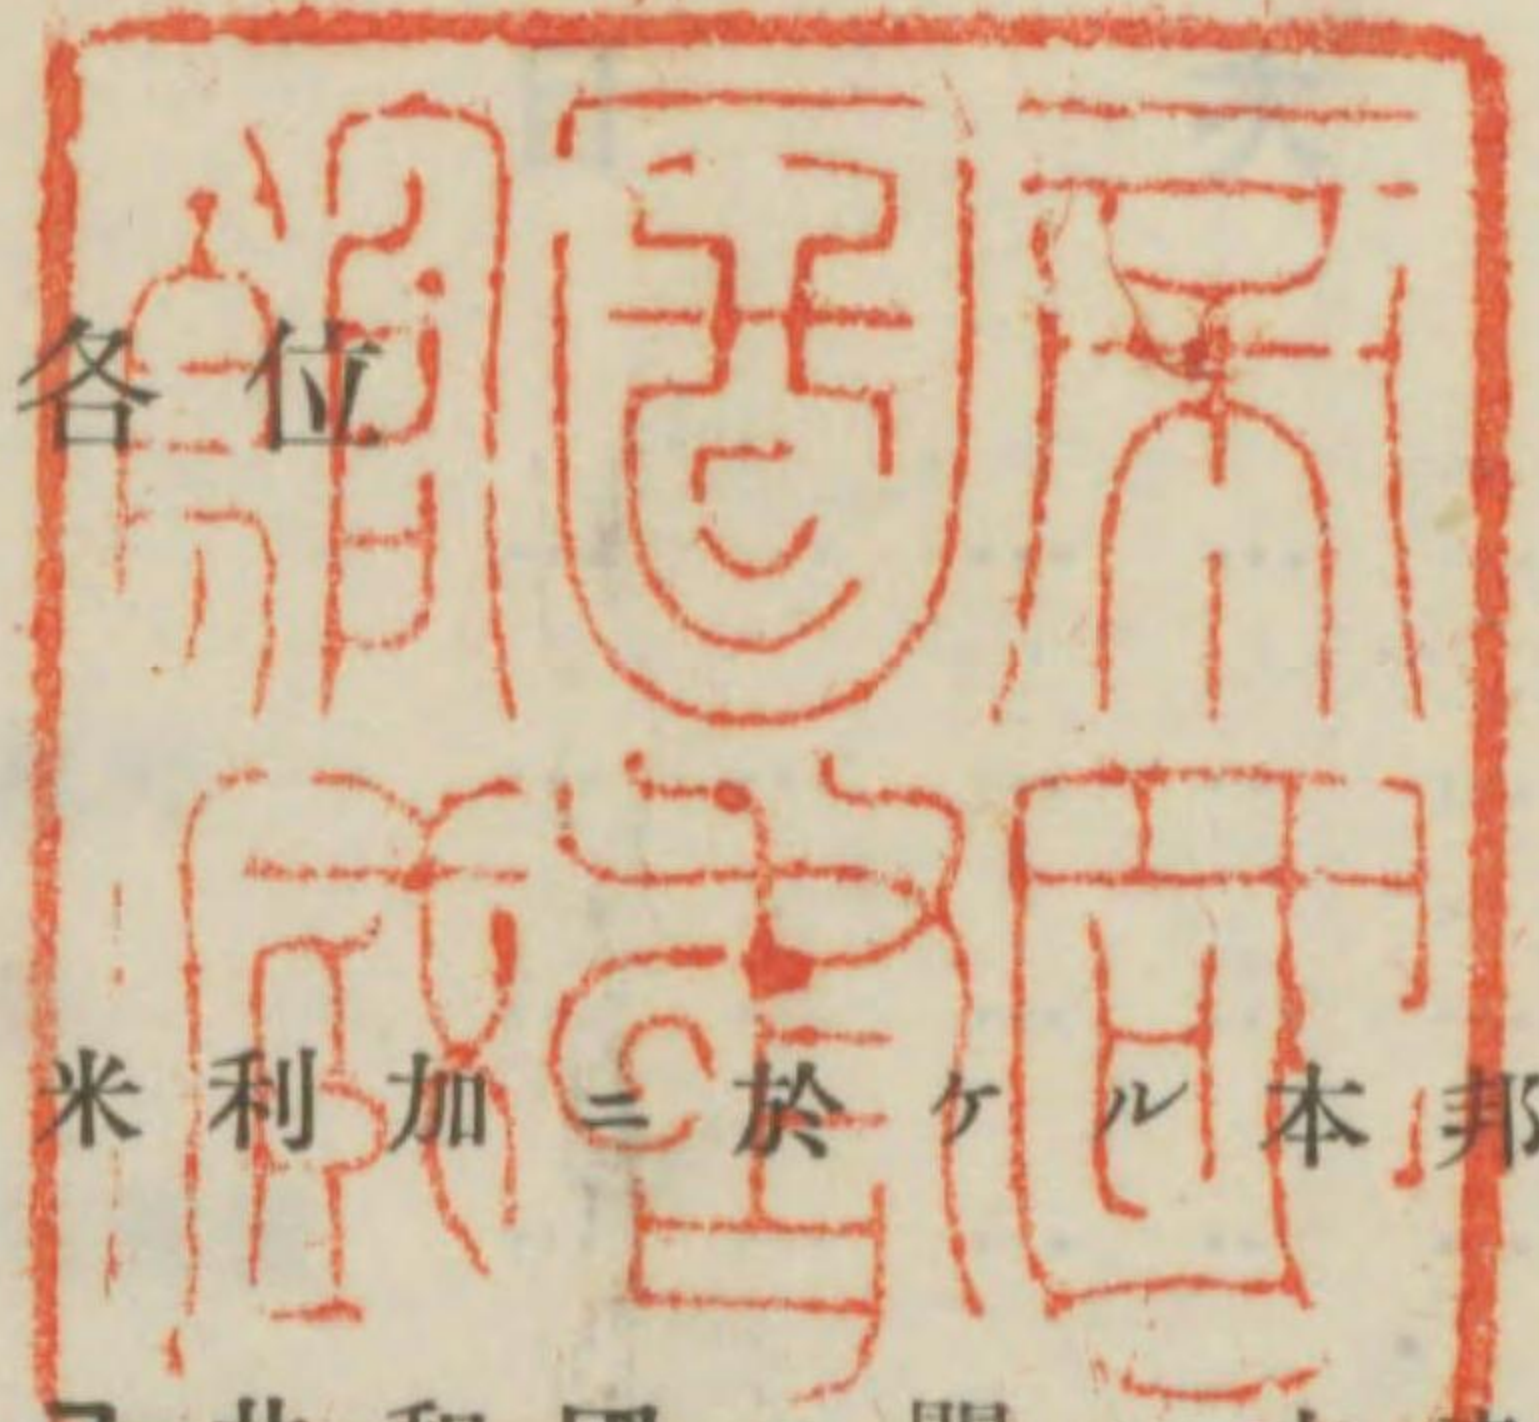 帝國
圖書
館藏
各位
米利加ニ於ケル本邦